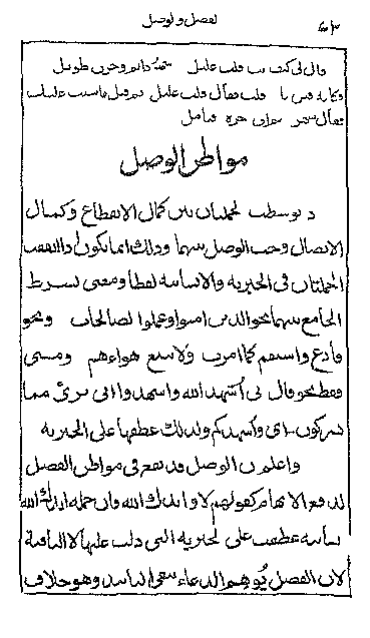 الفصل والوصل
قال لي كيف انت قلت عليل سهر دائم وحزن طويل
قلت عليل ثم قيل ما سبب علتك
فقال سهر فتأمل
مواطن الوصل
اذا توسطت الجملتان بين كمال الانقطاع وكمال
الاتصال وجب الوصل بينهما وذلك انما يكون اذا اتفقت
الجملتان في الخبرية والانشائية لفظا ومعنى بشرط
الجامع بينهما نحو الذين امنوا وعملوا الصالحات ونحو
فادع واستقم كما امرت ولا تتبع اهواءهم ومعنى
فقط نحو قال اني اشهد الله واشهدوا اني بريء مما
تشركون اي واشهدكم ولذلك عطفها على الخبرية
واعلم ان الوصل قد يقع في مواطن الفصل
لدفع الايهام كقولهم لا وايدك الله فان جملة ايدك الله
انشائية عطفت على الخبرية التي دلت عليها لا النافية
لان الفصل يُوهم الدعاء وهو خلاف